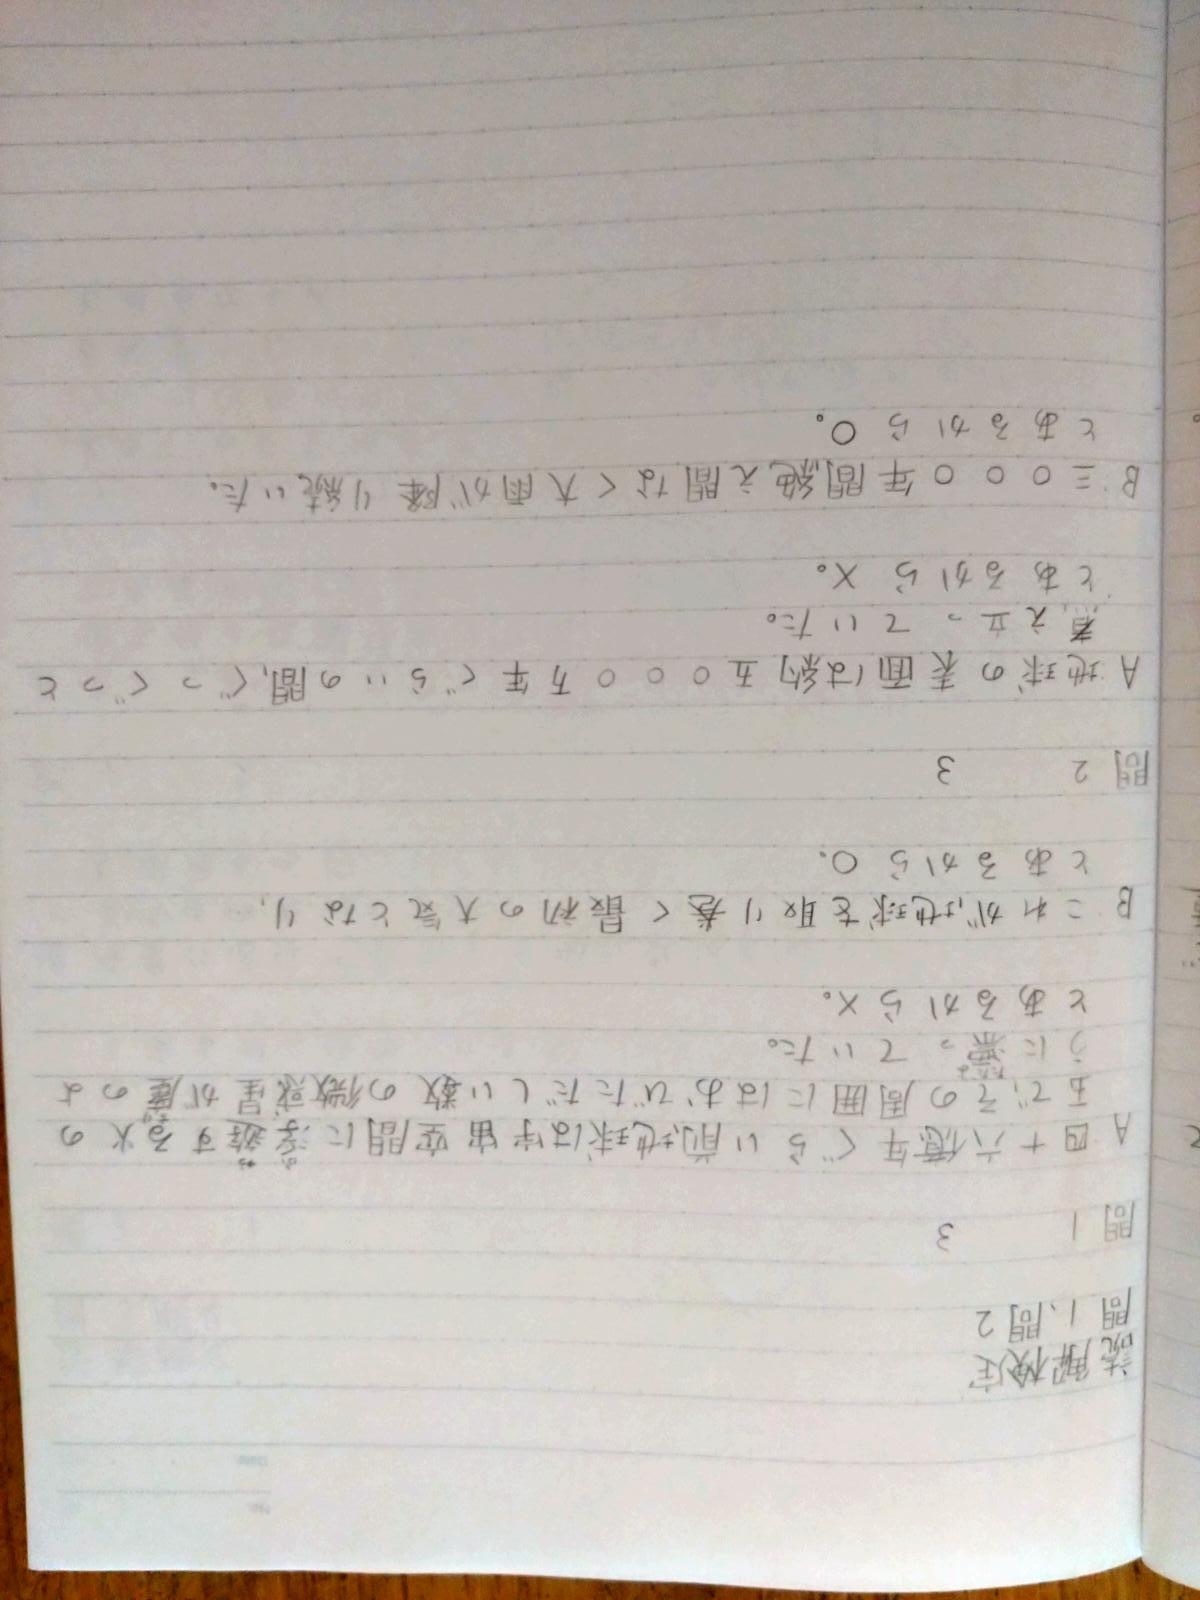 読解検定
問1、問2
問1 3
A 四十六億年ぐらい前、地球は宇宙空間に浮遊する火の
玉で、その周囲にはおびただしい数の微惑星が塵のよ
うに漂っていた。
とあるから×。
B これが、地球を取り巻く最初の大気となり、
とあるから○。
問2 3
A 地球の表面は約五〇〇〇万年ぐらいの間、ぐつぐつと
煮え立っていた。
とあるから×。
B 三〇〇〇年間絶え間なく大雨が降り続いた。
とあるから○。